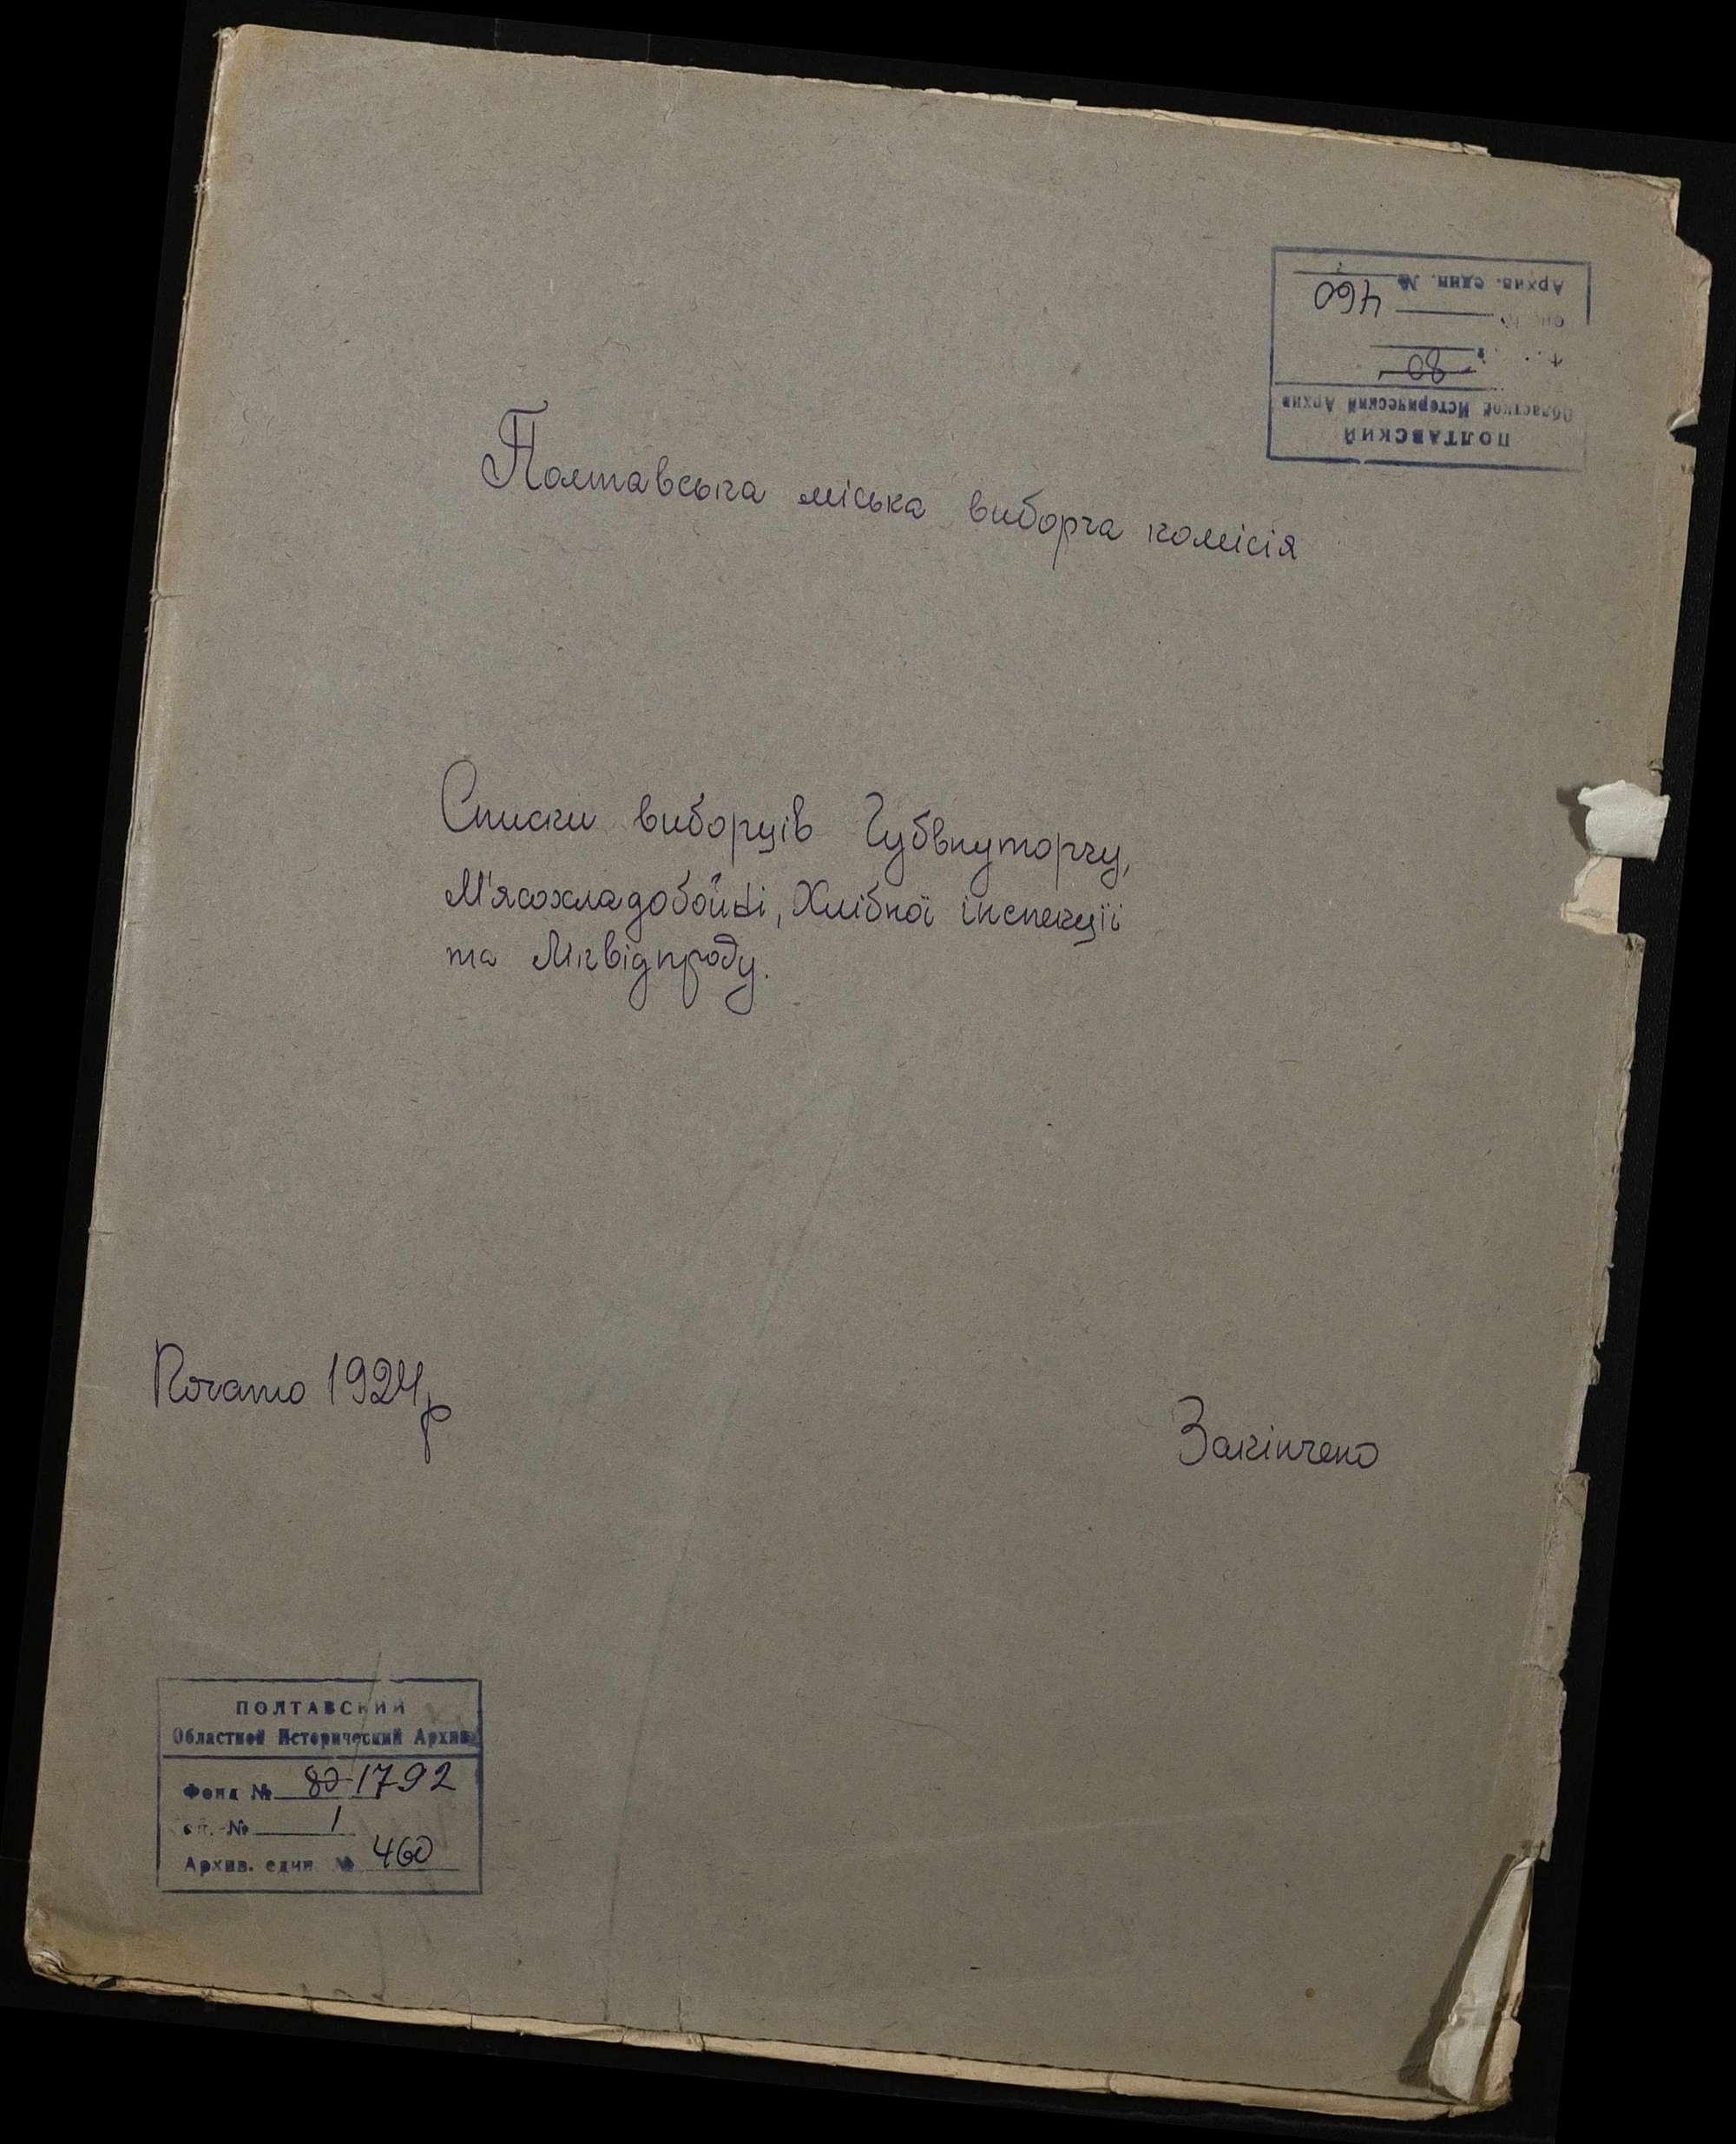 ПОЛТАВСКИЙ
Областной Исторический Архив
80
оп. №
460
Архив. един. №
Полтавська міська виборча комісія
Списки виборців Губвнуторгу,
М'ясохладобойні, Хлібної інспекції
та
Почато 1924 р
Закінчено
ПОЛТАВСКИЙ
Областной Исторический Архив
Фонд № 80 1792
оп. № 1
Архив. един № 460